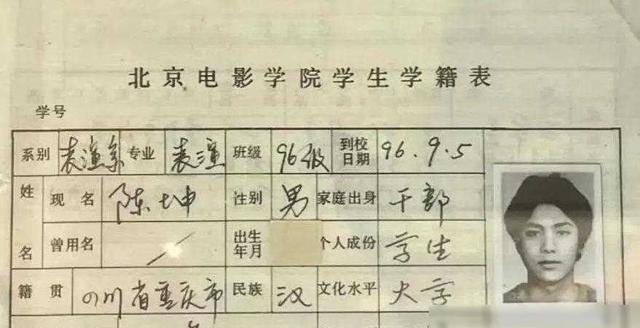 北京电影学院学生学籍表
学号
系别 表演系 专业 表演 班级 96级 到校日期 96.9.5
姓名 现名 陈坤 性别 男 家庭出身 干部
曾用名 / 出生年月 个人成份 学生
籍贯 四川省重庆市 民族 汉 文化水平 大学